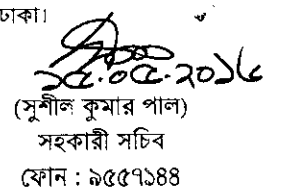 ঢাকা।
১৫.০৫.২০১৬
(সুশীল কুমার পাল)
সহকারী সচিব
ফোন : ৯৫৫৭১৪৪